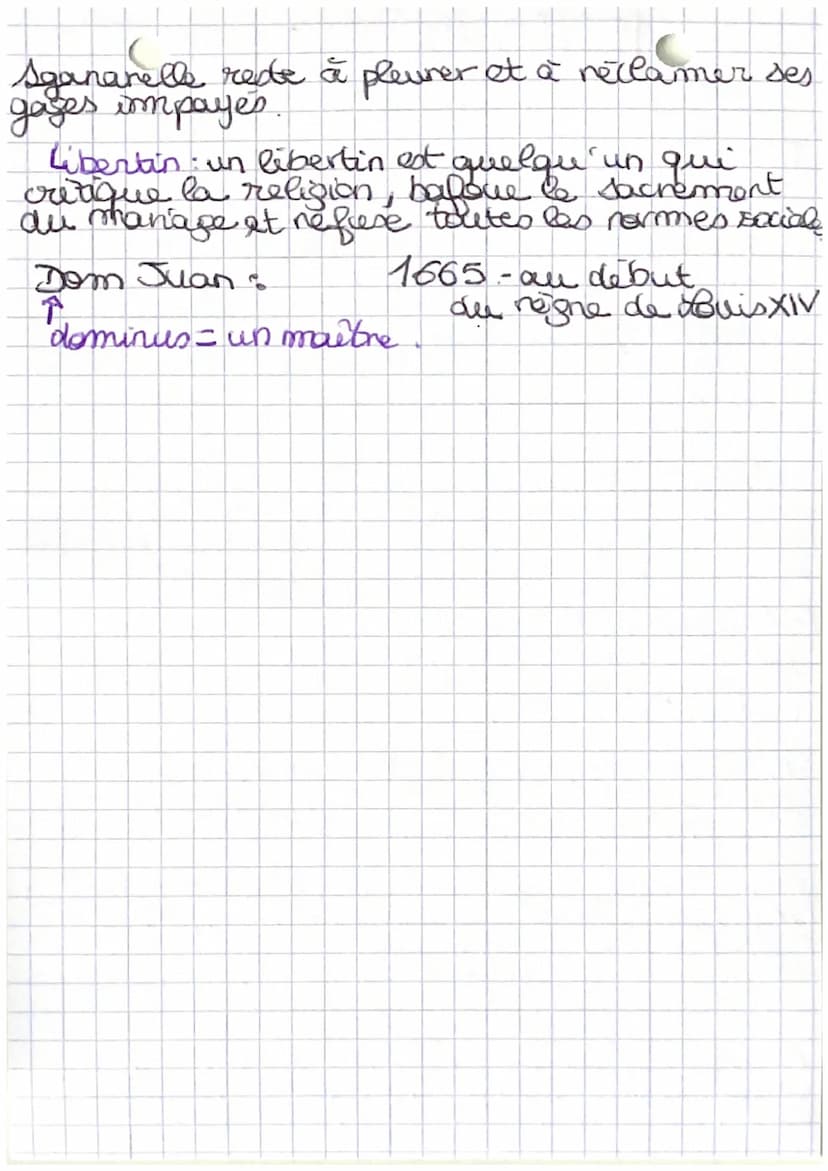 Sganarelle reste à pleurer et à réclamer ses
gages impayés.
Libertin : un libertin est quelqu'un qui
critique la religion, bafoue le sacrement
du mariage et refuse toutes les normes social
Dom Juan : 1665 - au début
du règne de Louis XIV
↑
dominus = un maître.